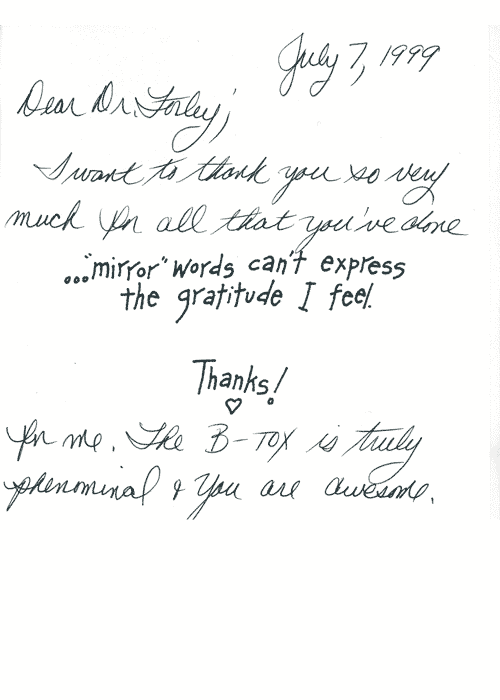 July 7, 1999
Dear Dr. Forley,
I want to thank you so very
much for all that you've done
..."mirror" words can't express
the gratitude I feel.
Thanks!
for me. The B-TOX is truly
phenominal & you are awesome.